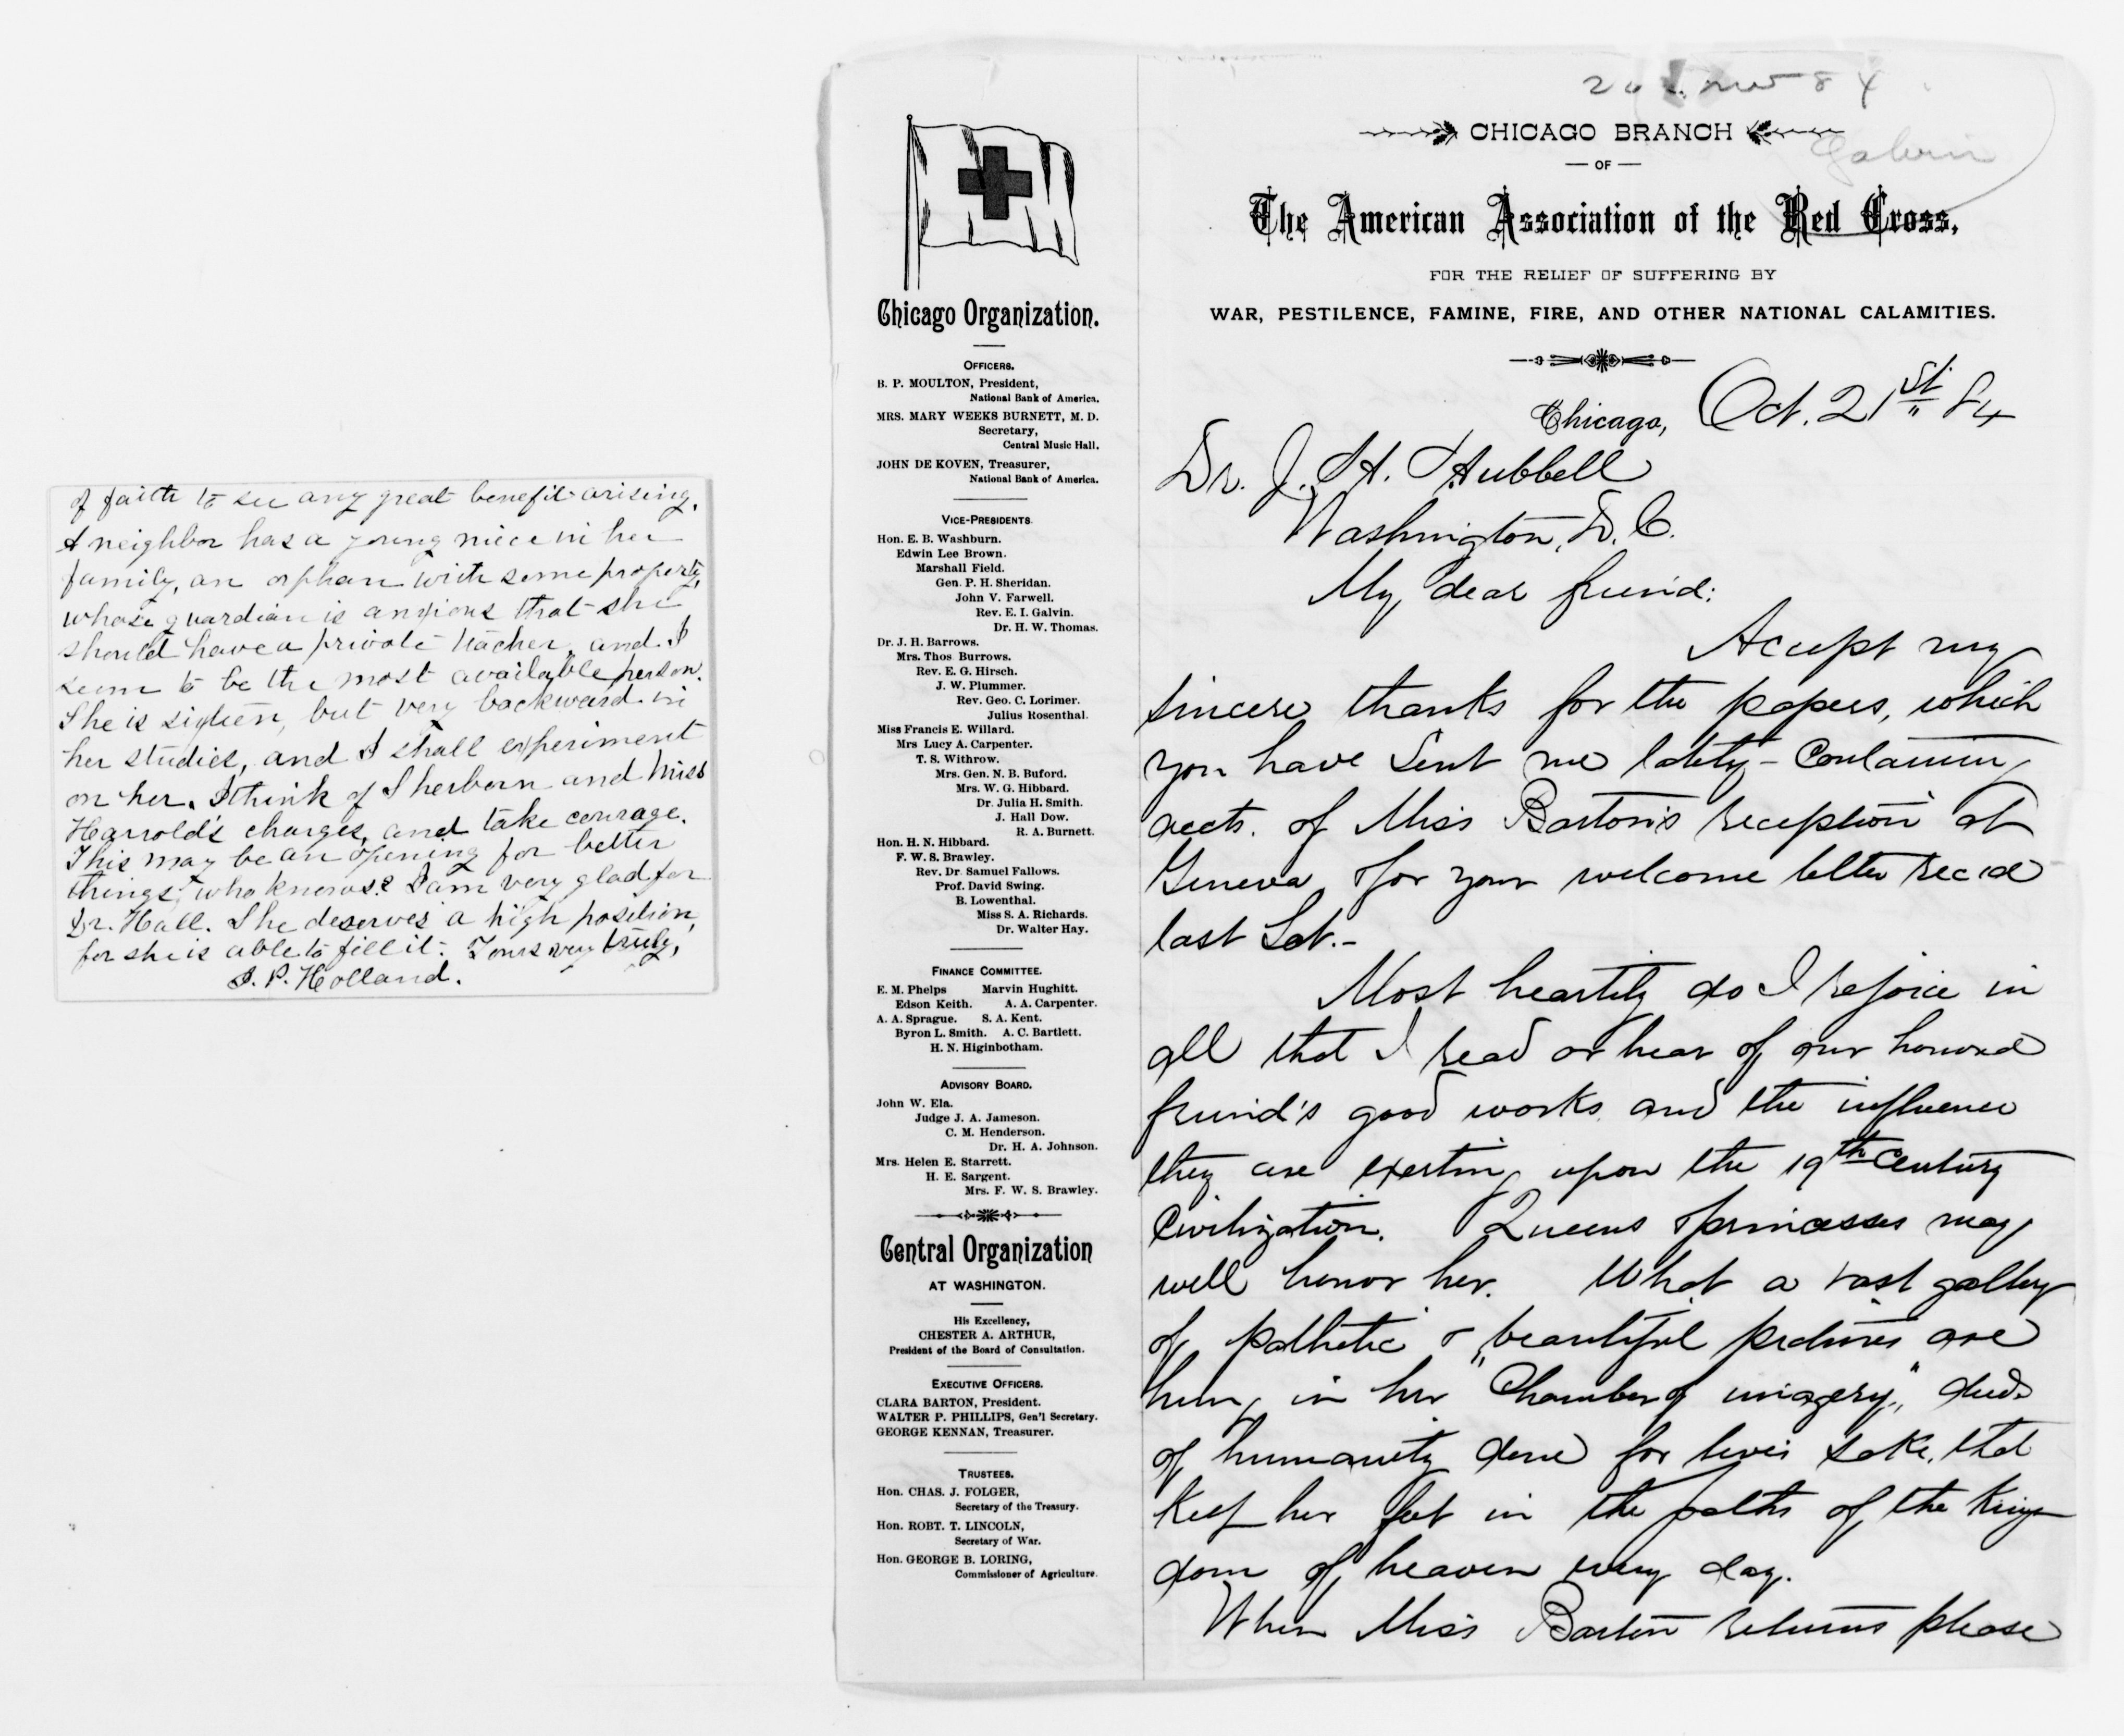 of faith to see any great benefit arising.
A neighbor has a young niece in her
family, an orphan with some property,
whose guardian is anxious that she
should have a private teacher, and I
seem to be the most available person.
She is sixteen, but very backward in
her studies, and I shall experiment
on her. I think of Sherborn and Miss
Harrold's charges, and take courage.
This may be an opening for better
things, who knows? I am very glad for
Dr. Hall. She deserves a high position,
for she is able to fill it. Yours very truly,
S. P. Holland.
Chicago Organization.
OFFICERS.
B. P. MOULTON, President,
National Bank of America.
MRS. MARY WEEKS BURNETT, M. D.
Secretary,
Central Music Hall.
JOHN DE KOVEN, Treasurer,
National Bank of America.
VICE-PRESIDENTS.
Hon. E. B. Washburn.
Edwin Lee Brown.
Marshall Field.
Gen. P. H. Sheridan.
John V. Farwell.
Rev. E. I. Galvin.
Dr. H. W. Thomas.
Dr. J. H. Barrows.
Mrs. Thos Burrows.
Rev. E. G. Hirsch.
J. W. Plummer.
Rev. Geo. C. Lorimer.
Julius Rosenthal.
Miss Francis E. Willard.
Mrs Lucy A. Carpenter.
T. S. Withrow.
Mrs. Gen. N. B. Buford.
Mrs. W. G. Hibbard.
Dr. Julia H. Smith.
J. Hall Dow.
R. A. Burnett.
Hon. H. N. Hibbard.
F. W. S. Brawley.
Rev. Dr. Samuel Fallows.
Prof. David Swing.
B. Lowenthal.
Miss S. A. Richards.
Dr. Walter Hay.
FINANCE COMMITTEE.
E. M. Phelps Marvin Hughitt.
Edson Keith. A. A. Carpenter.
A. A. Sprague. S. A. Kent.
Byron L. Smith. A. C. Bartlett.
H. N. Higinbotham.
ADVISORY BOARD.
John W. Ela.
Judge J. A. Jameson.
C. M. Henderson.
Dr. H. A. Johnson.
Mrs. Helen E. Starrett.
H. E. Sargent.
Mrs. F. W. S. Brawley.
Central Organization
AT WASHINGTON.
His Excellency,
CHESTER A. ARTHUR,
President of the Board of Consultation.
EXECUTIVE OFFICERS.
CLARA BARTON, President.
WALTER P. PHILLIPS, Gen'l Secretary.
GEORGE KENNAN, Treasurer.
TRUSTEES.
Hon. CHAS. J. FOLGER,
Secretary of the Treasury.
Hon. ROBT. T. LINCOLN,
Secretary of War.
Hon. GEORGE B. LORING,
Commissioner of Agriculture.
84
Galvin
CHICAGO BRANCH
OF
The American Association of the Red Cross,
FOR THE RELIEF OF SUFFERING BY
WAR, PESTILENCE, FAMINE, FIRE, AND OTHER NATIONAL CALAMITIES.
Chicago, Oct. 21st 84
Dr. J. H. Hubbell
Washington, D. C.
My dear friend:
Accept my
sincere thanks for the papers, which
you have sent me lately - containing
accts. of Miss Barton's reception at
Geneva, & for your welcome letter rec'd
last Sat. -
Most heartily do I rejoice in
all that I read or hear of our honored
friend's good works and the influence
they are exerting upon the 19th Century
Civilization. Queens & princesses may
well honor her. What a vast gallery
of pathetic & beautiful pictures are
hung in her "Chamber of imagery," deeds
of humanity done for love's sake, that
keep her feet in the paths of the King-
dom of heaven every day.
When Miss Barton returns please